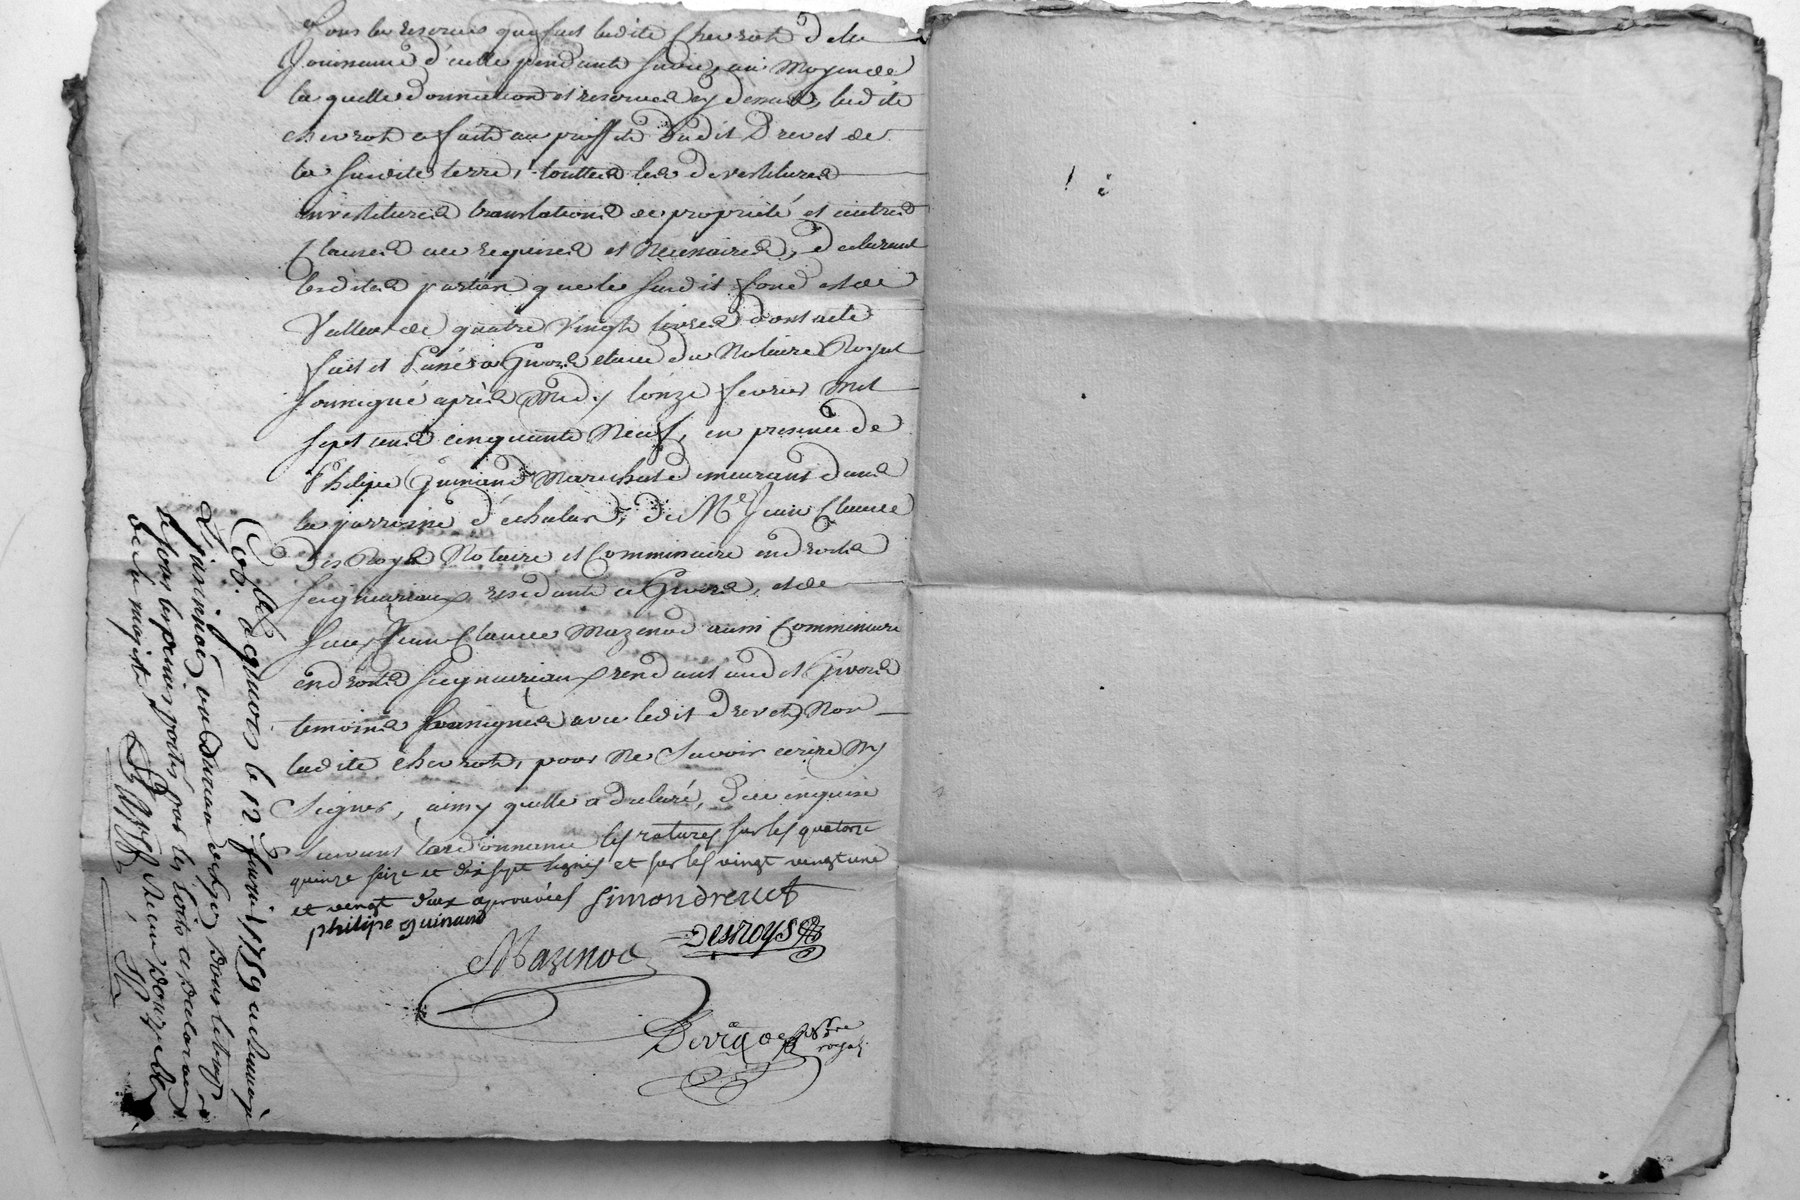 Sous les reserves que fait ladite Chevrot de la
Jouissance d'icelle pendant sa vie, au moyen de
la quelle donnation et reserves cy dessus, ladite
chevrot a fait au proffit dudit Drevet de
la susdite terre, touttes les devestitures
investitures translations de propriété et autres
Clauses au requises et Necessaires, declarant
lesdites parties que le susdit fond est de
Valleur de quatre Vingt livres dont acte
fait et Passé a Givors etude du Notaire Royal
soussigné après Midy l'onze fevrier Mil
sept cens cinquante Neuf, en presence de
Philipe Guinand Marechal demeurant dans
la parroisse d'échalas, de Me Jean Claude
Des Roys Notaire et Commissaire en droits
seigneuriaux residant a Givors, et de
sieur Jean Claude Mazenod aussi Commissaire
en droits seigneuriaux residant audit Givors
temoins soussignés avec ledit Drevet, Non
ladite chevrot, pour Ne Savoir ecrire Ny
Signer, ainsy quelle a declaré, de ce enquise
suivant l'ordonnance les ratures sur les quatorze
quinze seize et dix sept lignes et sur les vingt vingt une
et vingt deux aprouvées Simon drevet
philipe guinand
Mazenod Desroys
notre
royal
Coll. a givors le 12 fevrier 1759
au bureau
par les
de sa majesté Recu douze